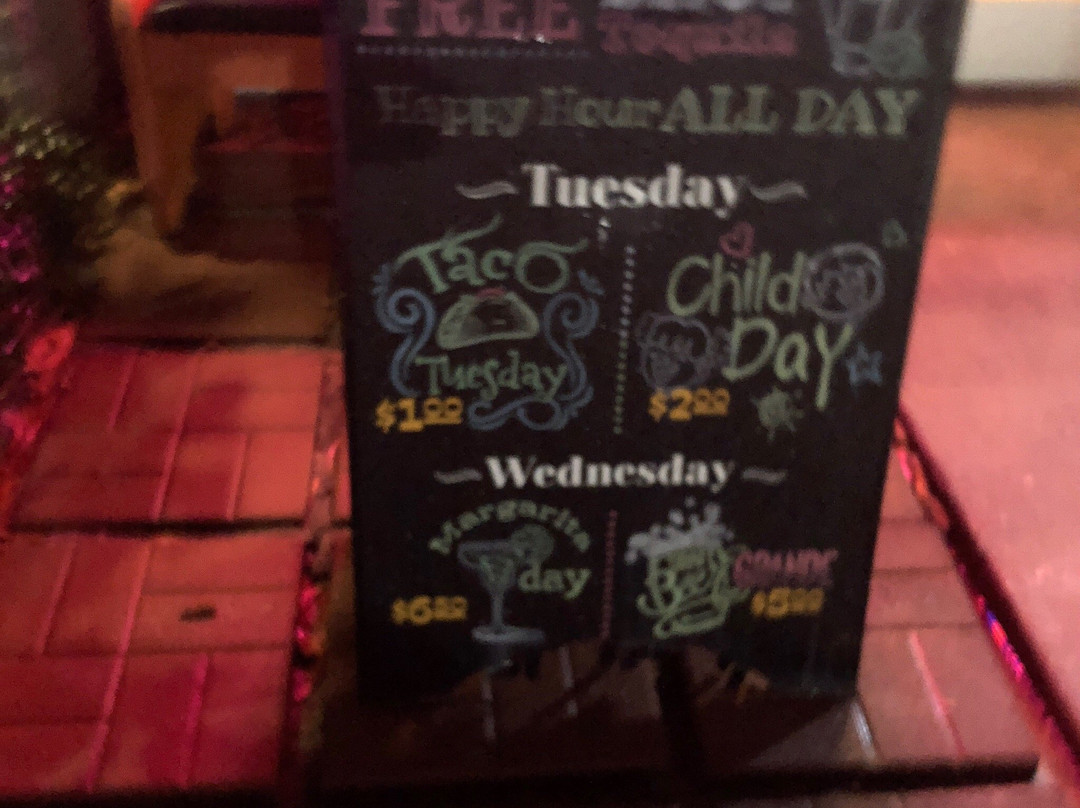 FREE
Tequila
Happy Hour ALL DAY
Tuesday
Taco
Tuesday
$1.00
Child
Day
$2.00
Wednesday
Margarita
day
$6.00
Beer
GRANDE
$5.00